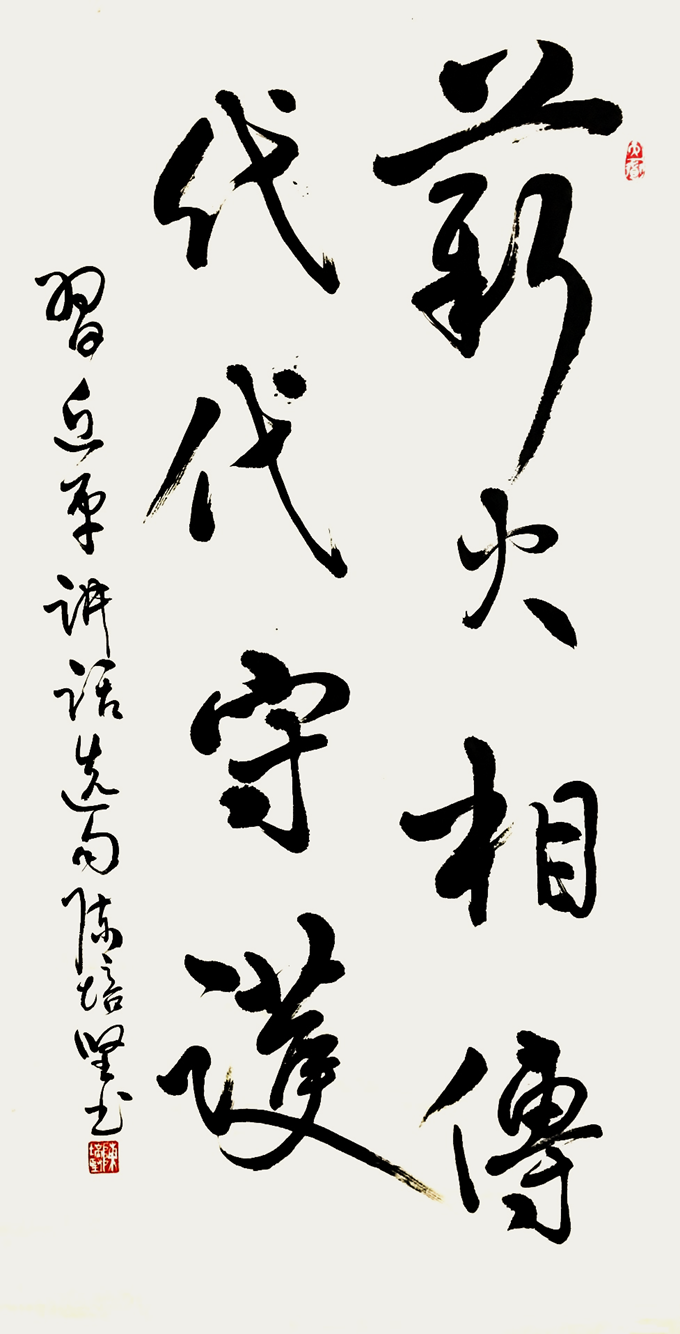 薪火相傳
代代守護
習近平講話選句陳培堅書